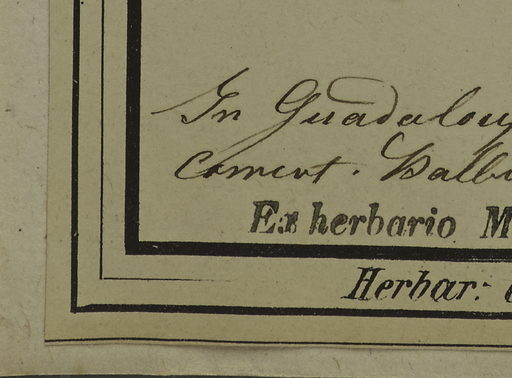 In Guadaloup
coment. Balbi
Ex herbario M
Herbar: